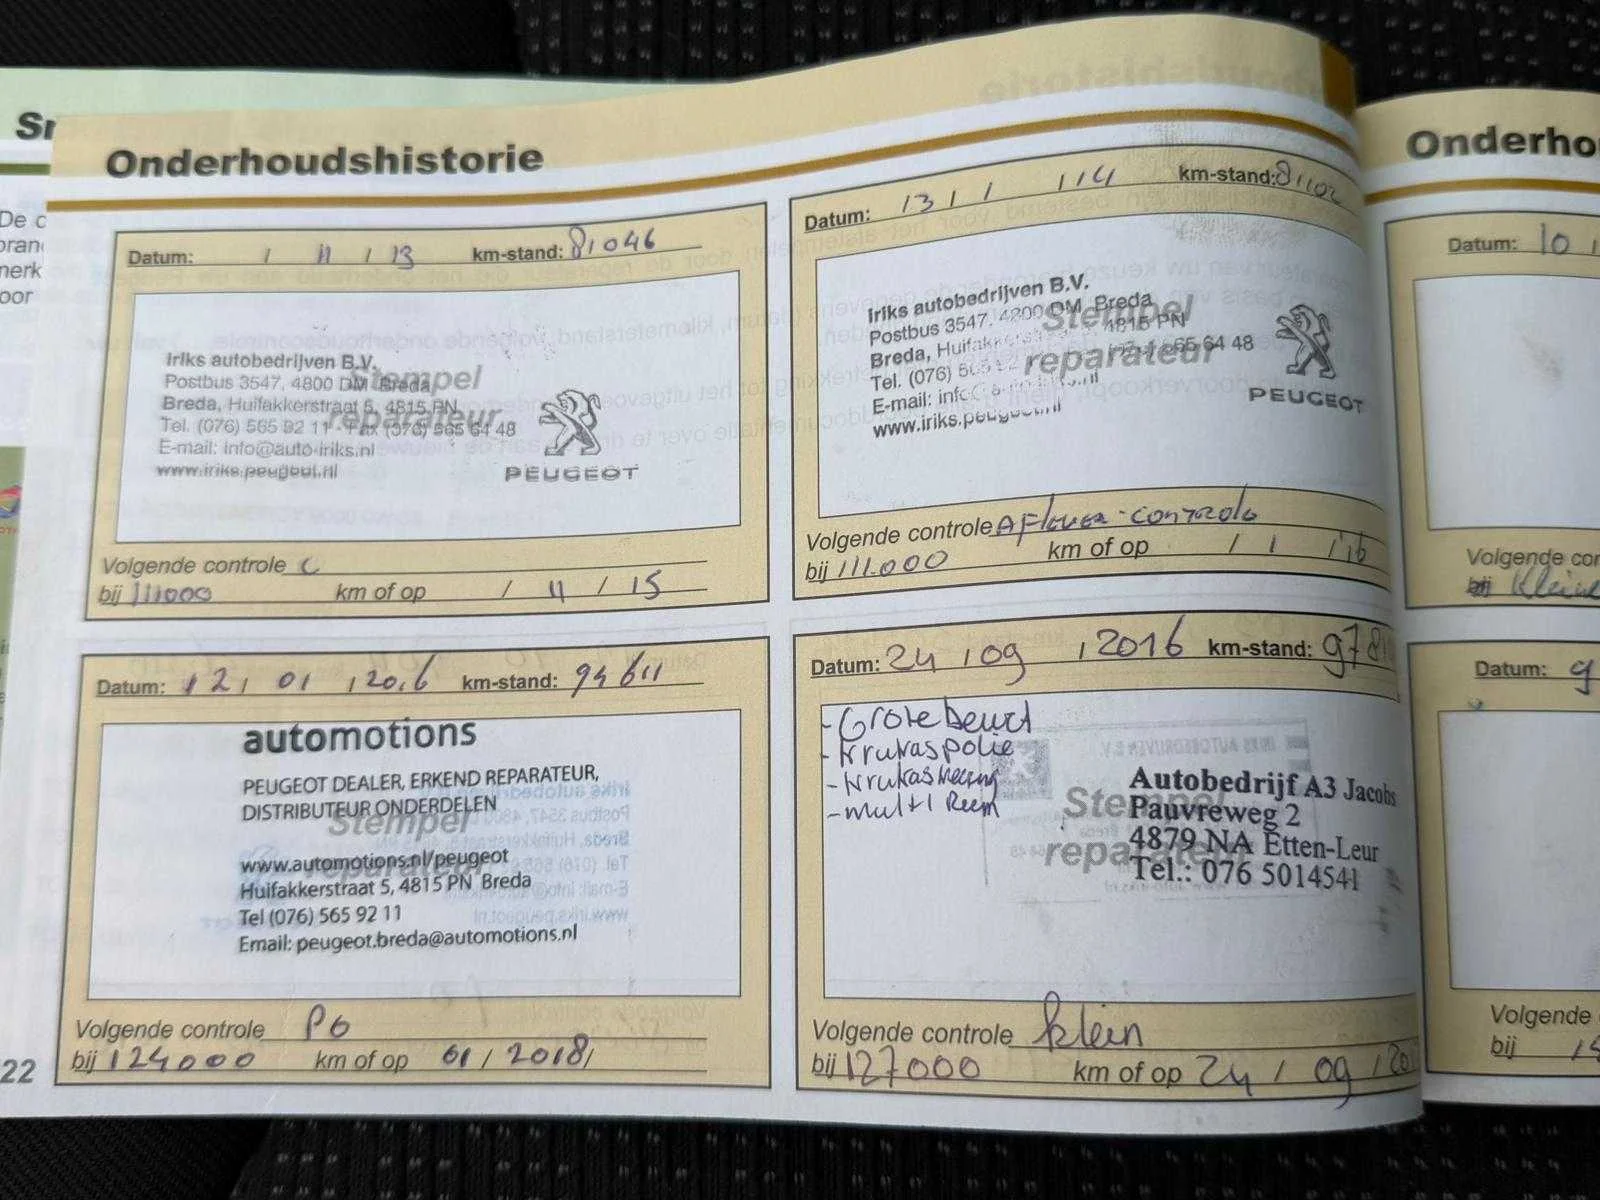 Onderhoudshistorie
Datum: / 11 / 13 km-stand: 81046
Stempel
reparateur
Iriks autobedrijven B.V.
Postbus 3547, 4800 DM Breda
Breda, Huifakkerstraat 5, 4815 PN
Tel. (076) 565 92 11 Fax (076) 565 64 48
E-mail: info@auto-iriks.nl
www.iriks.peugeot.nl
PEUGEOT
Volgende controle C
bij 111000 km of op / 11 / 15
Datum: 13 / 1 / 14 km-stand: 81102
Stempel
reparateur
Iriks autobedrijven B.V.
Postbus 3547, 4800 DM Breda
Breda, 4815 PN
Tel. (076) 565 64 48
E-mail:
www.iriks.peugeot.nl
PEUGEOT
Volgende controle Aflever-controle
bij 111.000 km of op / 1 / 16
Datum: 12 / 01 / 2016 km-stand: 94611
automotions
PEUGEOT DEALER, ERKEND REPARATEUR,
DISTRIBUTEUR ONDERDELEN
Stempel
reparateur
www.automotions.nl/peugeot
Huifakkerstraat 5, 4815 PN Breda
Tel (076) 565 92 11
Email: peugeot.breda@automotions.nl
Volgende controle
bij 124000 km of op 01 / 2018 /
Datum: 24 / 09 / 2016 km-stand:
- Grote beurt
- Krukaspolie
- Multi Reem
Stempel
reparateur
Autobedrijf A3 Jacobs
Pauvreweg 2
4879 NA Etten-Leur
Tel.: 076 5014541
Volgende controle klein
bij 127000 km of op 24 / 09 /
22
Datum: 10
bij
Datum: 9
Volgende
bij